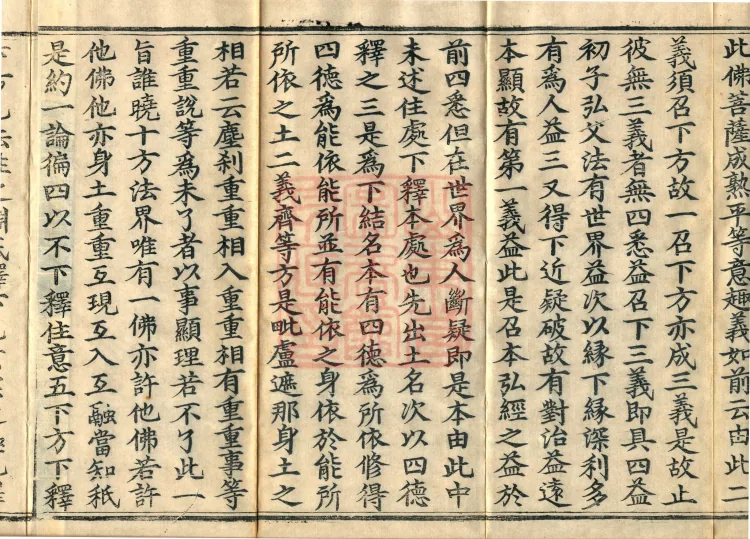 此佛菩薩成熟平等意趣義如前云由此二
義須召下方故一召下方亦成三義是故止
彼無三義者無四悉益召下三義即具四益
初子弘父法有世界益次以緣下緣深利多
有為人益三又得下近疑破故有對治益遠
本顯故有第一義益此是召本弘經之益於
前四悉但在世界為人斷疑即是本由此中
未述住處下釋本處也先出土名次以四德
釋之三是為下結名本有四德為所依修得
四德為能依能所並有能依之身依於能所
所依之土二義齊等方是毗盧遮那身土之
相若云塵剎重重相入重重相有重重事等
重重說等為未了者以事顯理若不了此一
旨誰曉十方法界唯有一佛亦許他佛若許
他佛他亦身土重重互現互入互融當知秖
是約一論徧四以不下釋住意五下方下釋